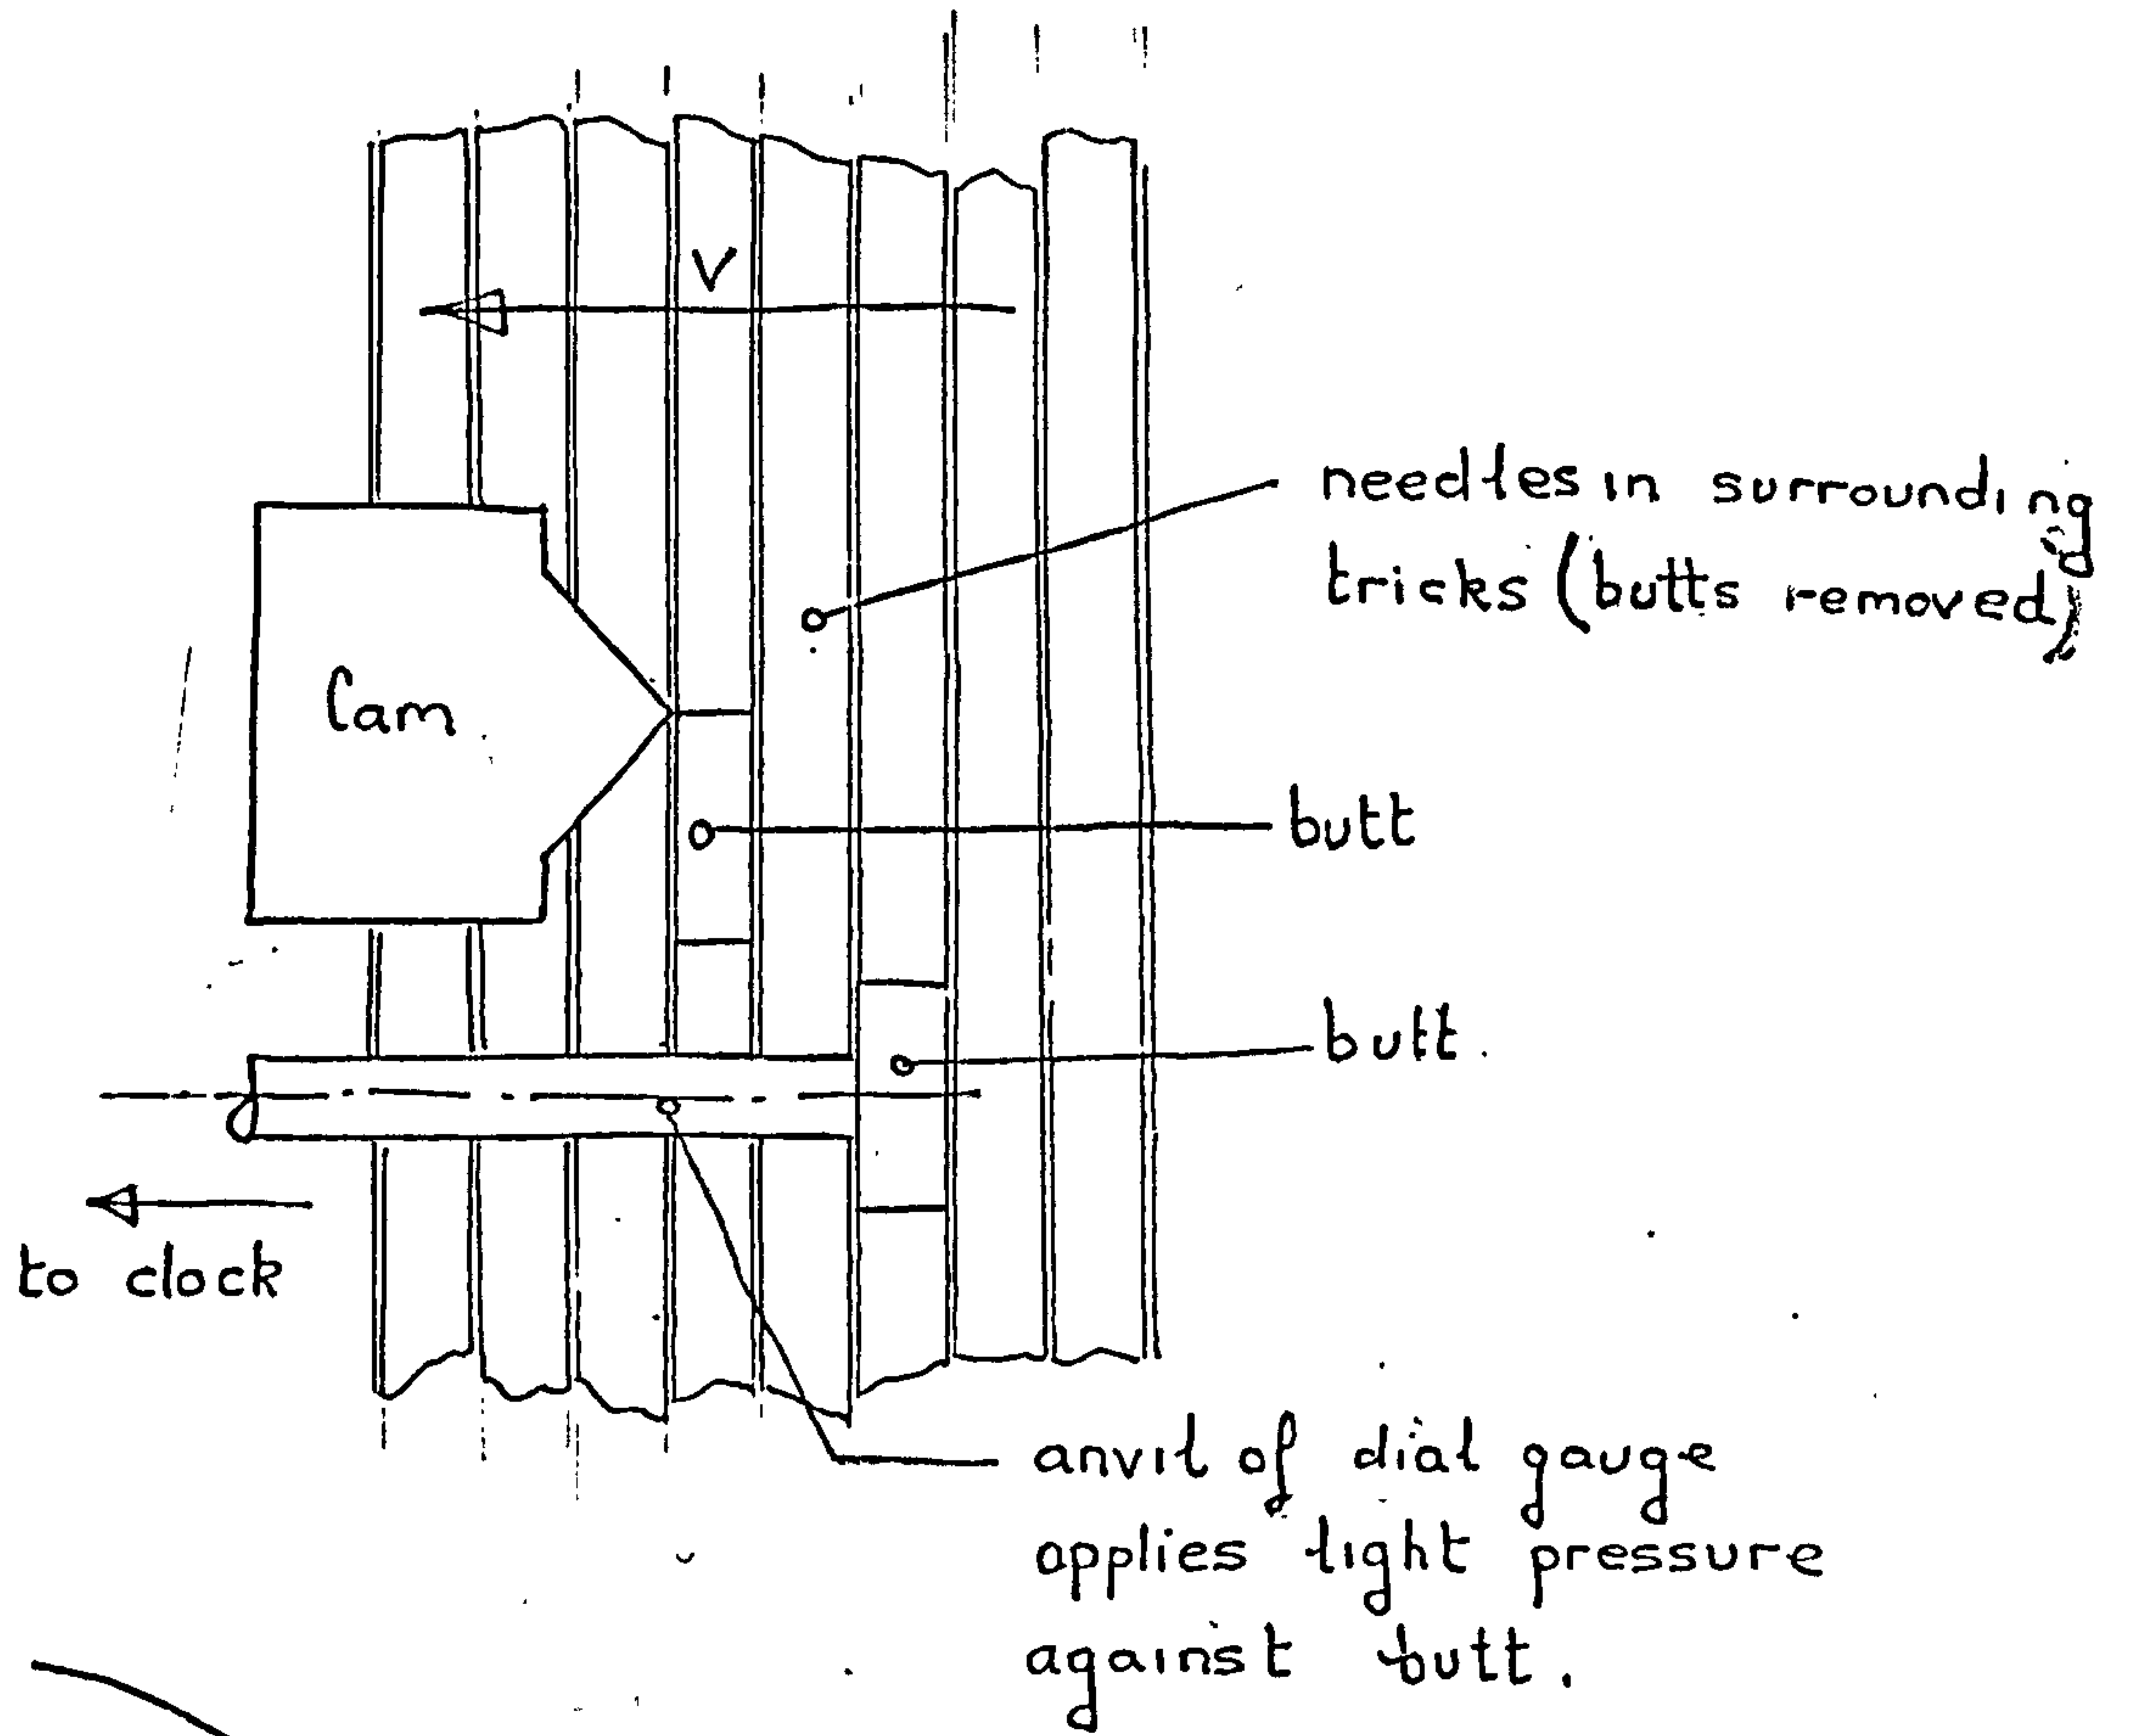 V
needles in surrounding
tricks (butts removed)
Cam
butt
butt.
to clock
anvil of dial gauge
applies light pressure
against butt.